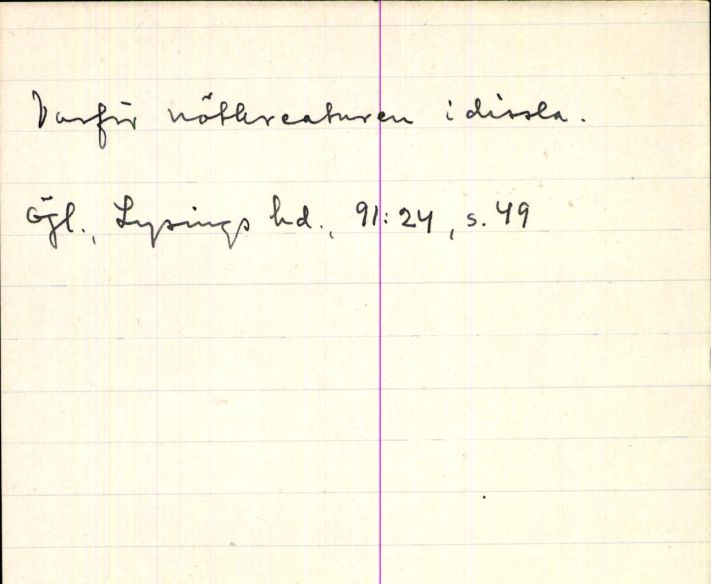 Varför nötkreaturen idissla.
Ögl., Lysings hd., 91:24, s. 49